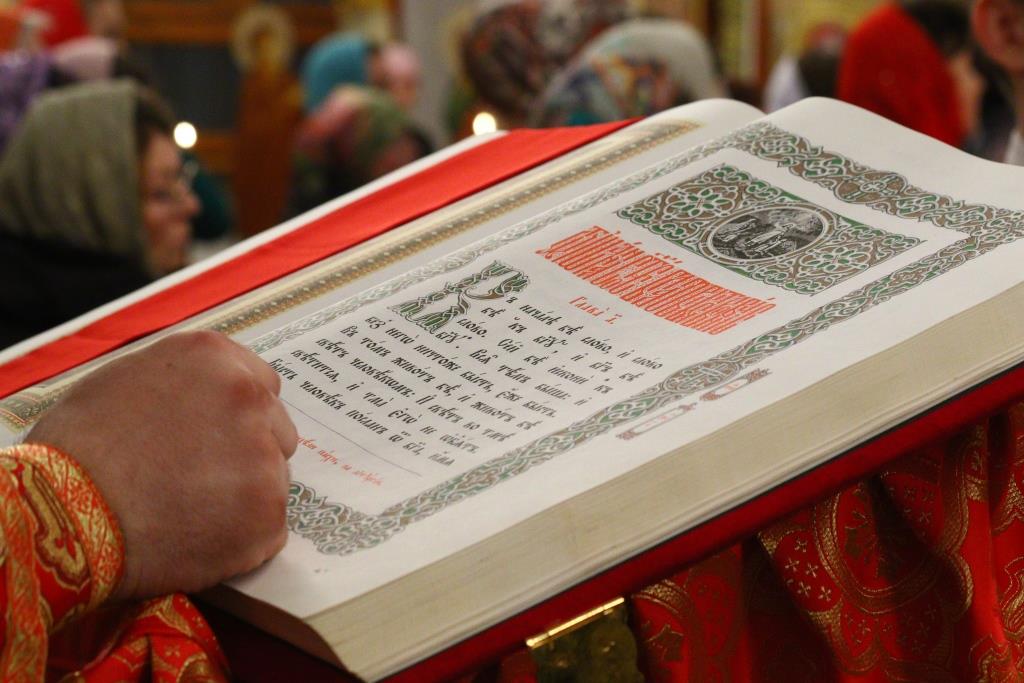 Глава̀ а҃.
Въ нача́лѣ бѣ̀ сло́во, и҆ сло́во
бѣ̀ къ бг҃ꙋ, и҆ бг҃ъ бѣ̀
сло́во. Се́й бѣ̀ и҆сконѝ къ
бг҃ꙋ. Всѧ̑ тѣ́мъ бы́ша: и҆
без̾ негѡ̀ ничто́же бы́сть, є҆́же бы́сть.
Въ то́мъ живо́тъ бѣ̀, и҆ живо́тъ бѣ̀
свѣ́тъ человѣ́кѡмъ: И҆ свѣ́тъ во тмѣ̀
свѣ́титсѧ, и҆ тма̀ є҆гѡ̀ не ѡ҆б̾ѧ́тъ.
человѣ́къ по́сланъ ѿ бг҃а, и҆́мѧ